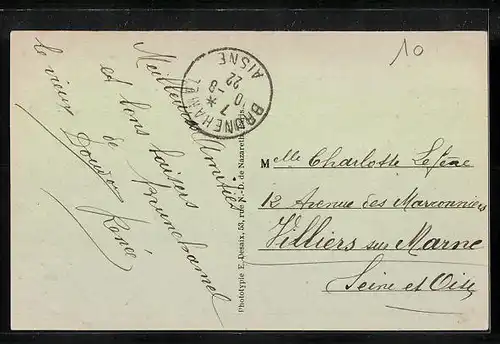 10
Meilleures Amitiés
et bons baisers
de Brunehamel
le vieux Doudou
Renée
BRUNEHAMEL
7 -8
10
22
AISNE
Phototypie E. Desaix, 53, rue N.-D. de Nazareth, Paris
Melle Charlotte
12 Avenue des Marronniers
Villiers sur Marne
Seine et Oise